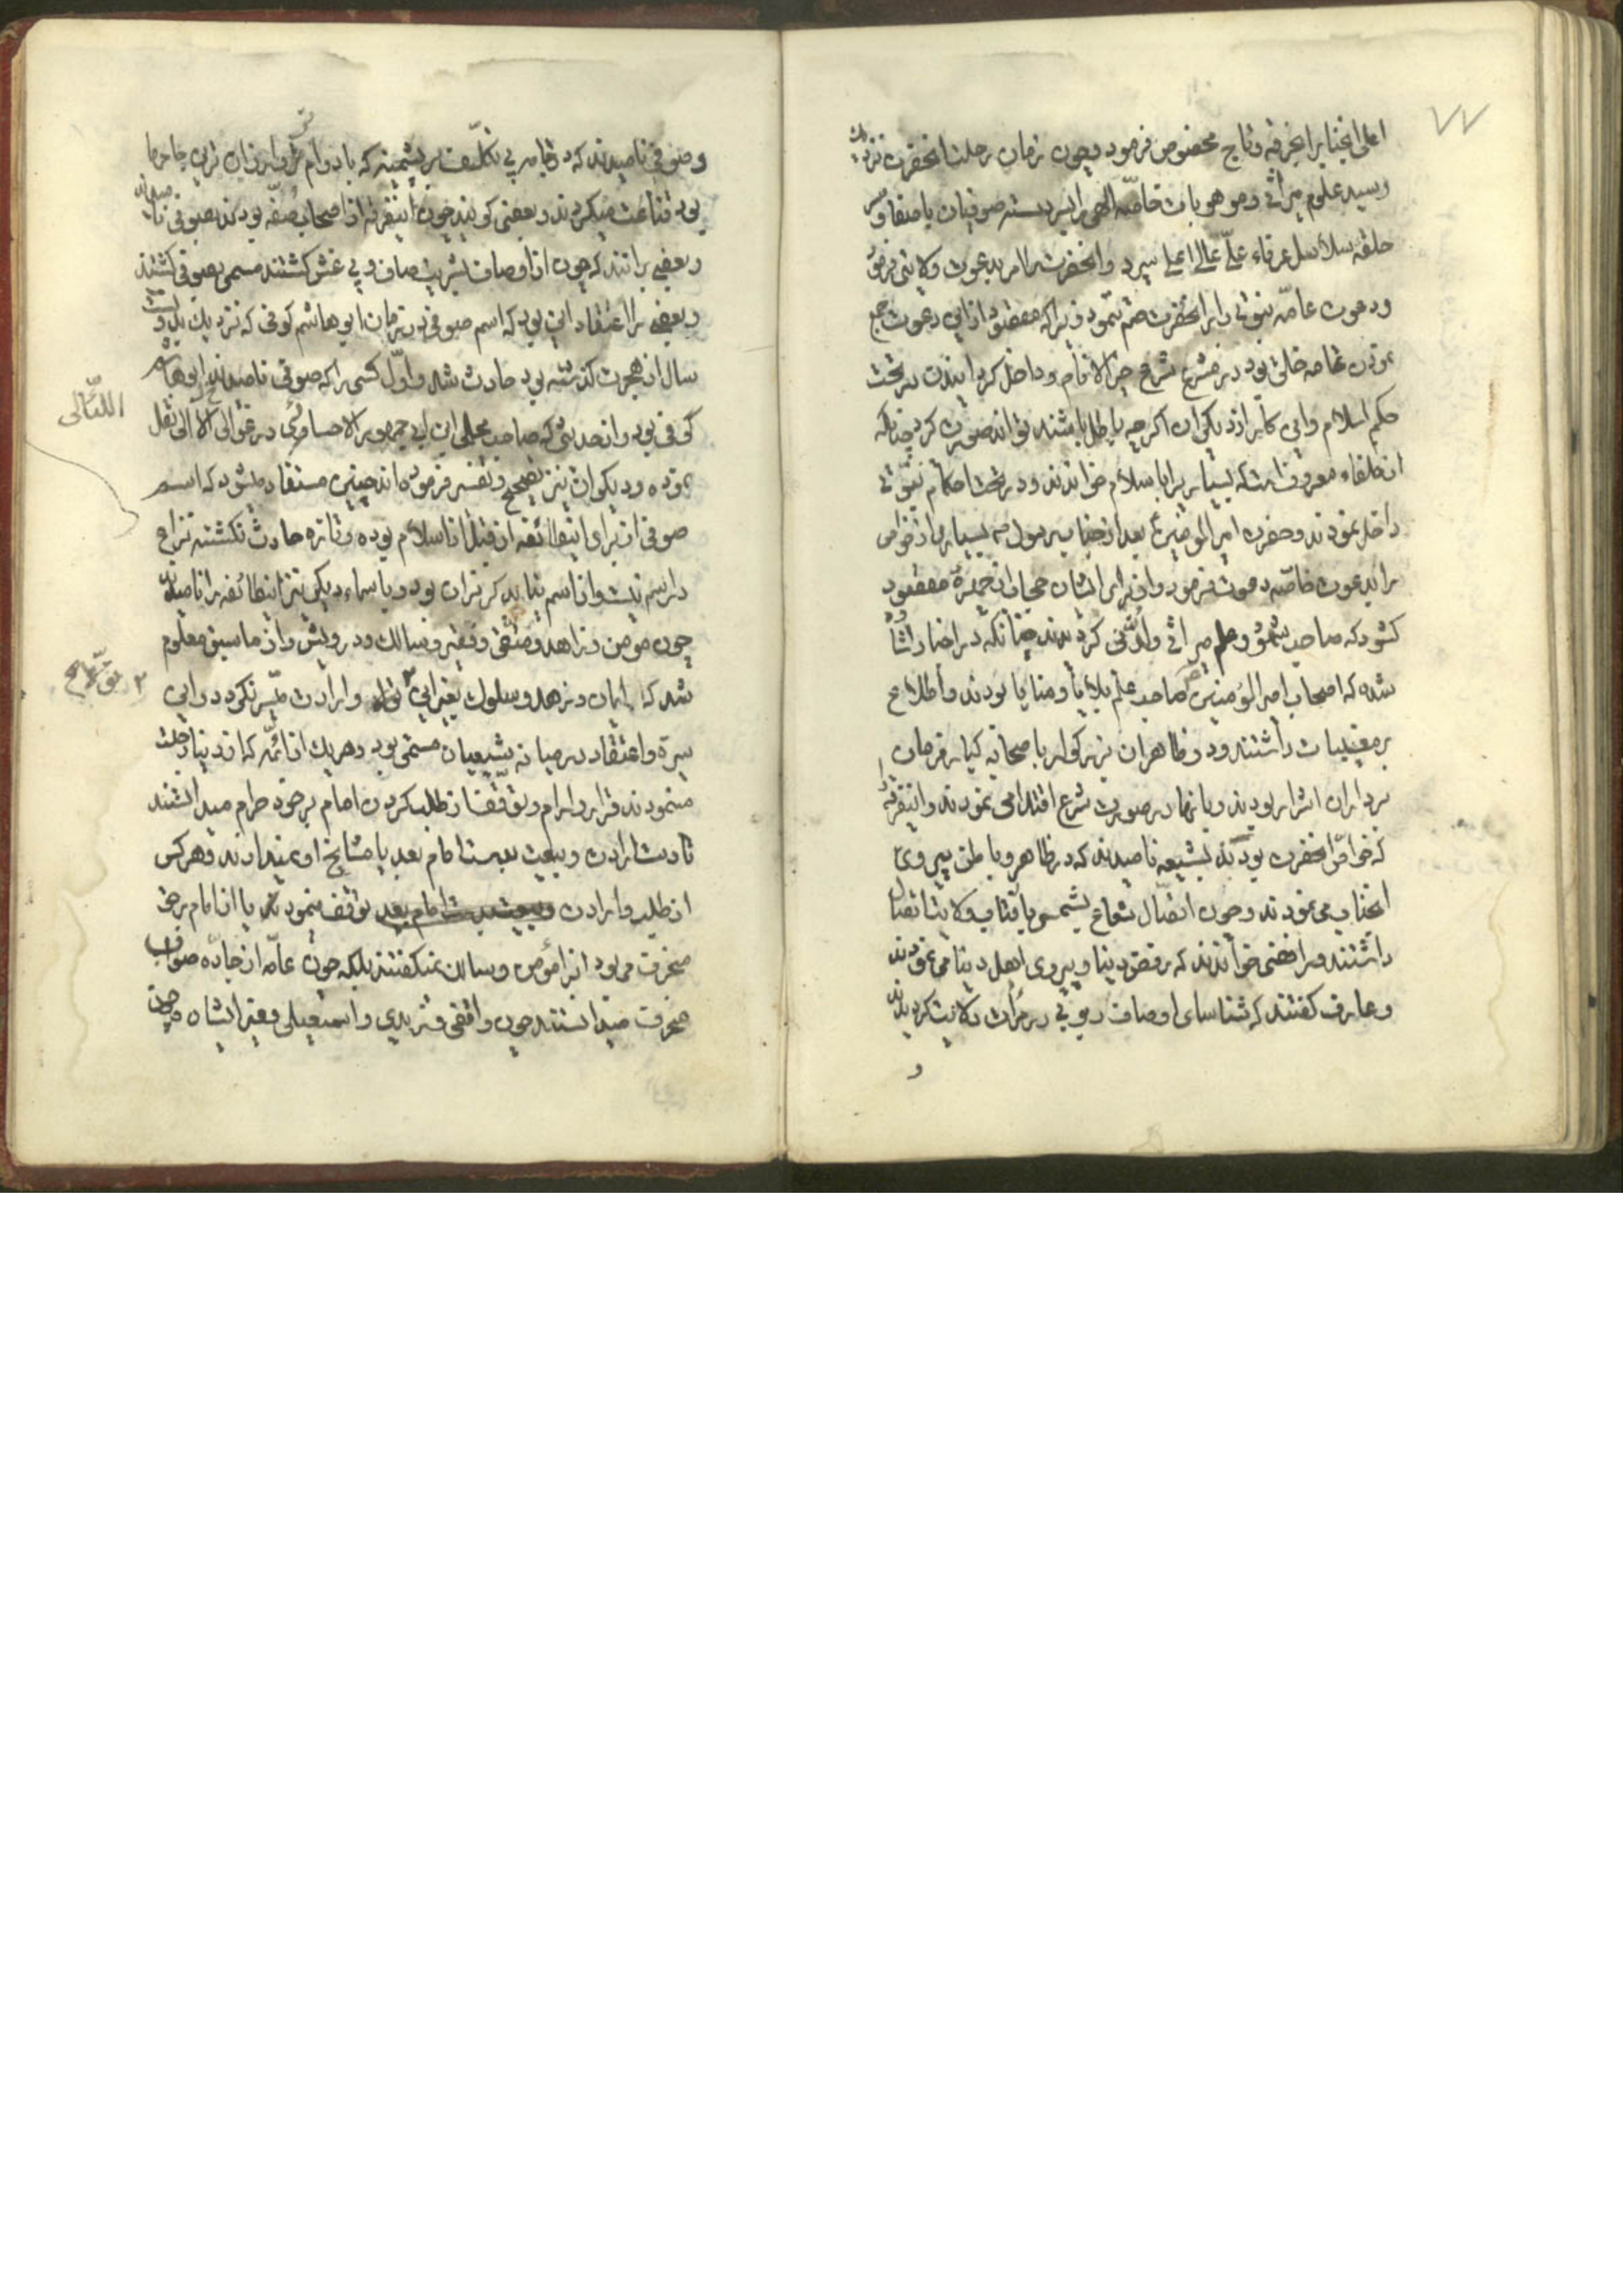 ۷۷
اعلی انجناب را بخرقه و تاج مخصوص فرمود و چون زمان رحلت انحضرت نزدیک
رسید علوم میراثی و موهوبات خاصّه الهی را بسر دسته صوفیان باصفا و سر
حلقه سلاسل عرفاء علیّ عالی اعلی سپرد و انحضرت را امر بدعوت ولایتی فرمود
و دعوت عامّه نبوتی را بر انحضرت ختم نمود زیرا که مقصود از این دعوت جمع
نمودن عامه خلق بود در مشرع شرع خیر الانام و داخل کردانیدن در تحت
حکم اسلام و این کار از دیکران اکرچه باطل باشند تواند صورت کرد چنانکه
از خلفاء معروفست که بسیاریرا باسلام خواندند و در تحت احکام نبوتی
داخل نمودند و حضرت امیر المومنین ع بعد از جناب رسول ص بسیاری از خواص
را بدعوت خاصّه دعوت فرمود و از برای ایشان حجاب از چهره مقصود
کشود که صاحب و علم میراثی ولدنی کردیدند چنانکه در اخبار وارد
شده که اصحاب امیر المومنین صاحب علم بلایا و منایا بودند و اطلاع
بر مغیبات داشتند و در ظاهر ان بزرکوار با صحابه کبار فرمان
بردار ان اشرار بودند و بانها در صورت شرع اقتدا می نمودند و اینفرقه را
که خواصّ انحضرت بودند بشیعه نامیدند که در ظاهر و باطن پیروی
انجناب می نمودند و چون اتصّال شعاع بشمس بافتاب ولایت اتصال
داشتند و رافضی خواندند که رفض دنیا و پیروی اهل دنیا می نمودند
و عارف کفتند که شناسای اوصاف ربوبی در مرآت ولایت کردیدند
و
و صوفی نامیدند که در جامه بی تکلّف پشمینه که بادوام تر و ارزان ترین جامها
بود قناعت میکردند و بعضی کویند چون اینفرقه از اصحاب صُفّه بودند بصوفی نامیده شدند
و بعضی برانند که چون از اوصاف بشریت صاف و بی غش کشتند مسمی بصوفی کشتند
و بعضی را اعتقاد این بود که اسم صوفی در زمان ابو هاشم کوفی که نزدیک بدویست
سال از هجرت کذشته بود حادث شد و اوّل کسی را که صوفی نامیدند ابو هاشم
کوفی بود و از حدیثی که صاحب مجلی ابن ابی جمهور الاحساوی در غوالی الّلئالی نقل
نموده و دیکران نیز تصحیح و تفسیر فرموده اند چنین مستفاد میشود که اسم
صوفی از برای اینطائفه از قبل از اسلام بوده و تازه حادث نکشته نزاع
در اسم نیست و از اسم نباید کریزان بود و باسماء دیکر نیز اینطائفه را نامیدند
چون مومن و زاهد و متقی و فقیر و سالک و درویش و از ما سبق معلوم
شد که ایمان و زهد و سلوک بغیر این تولا و ارادت میّسر نکردد و این
سیرة و اعتقاد در میانه شیعیان مستمر بود و هر یک از ائمّه که از دنیا رحلت
مینمودند قرار و ارام و توقّف از طلب کردن امام بر خود حرام میدانستند
تا دست ارادت و بیعت بدست امام بعد یا مشایخ او نمیدادند و هر کس
از طلب و ارادت توقف مینمودند یا از امام برحق
منحرف می بود انرا مؤمن و سالک نمیکفتند بلکه چون عامّه از جادّه صواب
منحرف میدانستند چون واقفی و زیدی و اسمعیلی و غیر ایشان
اللئالی